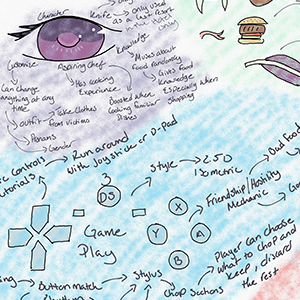 Character
Knife
Only used
as a last resort
Knowledge
Customise
Aspiring chef
Muses about
Food Randomly
Gives food
Knowledge
Especially when
shopping
Can change
anything at any
time
Has cooking
Experience
Boosted when
Cooking familiar
Dishes
outfit
Take clothes
From victims
Persons
Gender
Controls
tutorials
Run around
with Joystick or D-Pad
3
DS
Style
2.5D
Isometric
Friendship/Ability
Mechanic
Game
Play
X
Y
A
B
Button match
Stylus
Chop Sections
Player can choose
what to chop and
Keep, discard
the rest